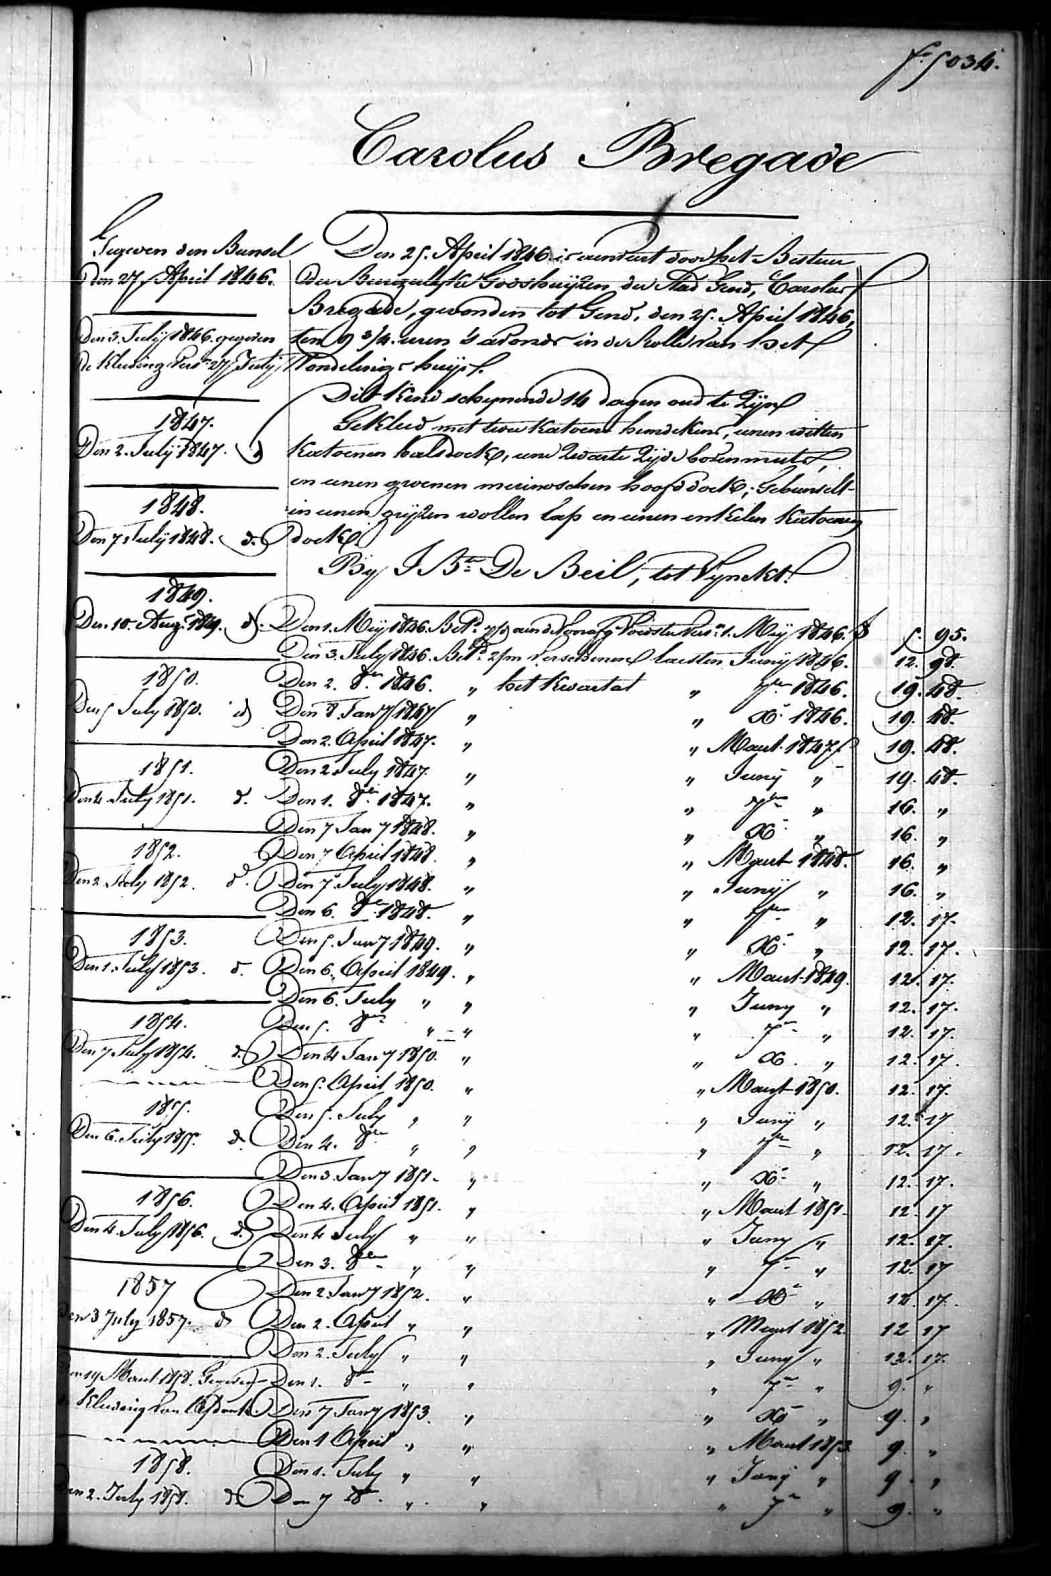 f° 5034.
Carolus Bregade
Gegeven den Bunsel
Den 27 April 1846.
Den 3. July 1846. gegeven
de Kleeding Verv. 27 July
1847.
Den 2. July 1847. d°
1848.
Den 7. July 1848. d°
1849.
Den 10. Aug. 1849. d°
1850.
Den 5 July 1850. d°
1851.
Den 4 July 1851. d°
1852.
Den 2. July 1852. d°
1853.
Den 1. July 1853. d°
1854.
Den 7 July 1854. d°
1855.
Den 6. July 1855. d°
1856.
Den 4. July 1856. d°
1857
Den 3 July 1857. d°
Den 19 Maert 1858. Gegeven
Kleeding van
1858.
Den 2. July 1858. d°
Den 25. April 1846. is aenveert door het Bestuer
der Burgelyke Godshuyzen, der Stad Gend, Carolus
Bregade, gevonden tot Gend, den 25. April 1846,
ten 9 3/4. uren 's avonds in de Rolle van het
Vondelings huys.
Dit Kind schynende 14 dagen oud te Zyn
Gekleed met twee katoene hemdekens, eenen witten
katoenen halsdoek, eene Zwarte Zyde bovenmuts,
en eenen groenen merinoschen hoofddoek; Gebunselt
in eenen gryzen wollen lap en eenen enkelen katoenen
doek.
By J. Bte De Beil, tot Vynckt.
Den 1. Mey 1846. Bet. Voorafg. Voedster Verv. 1. Mey 1846. 5. 95.
Den 3. July 1846. Bet. 2/m verschenen laesten Juny 1846. 12. 98.
Den 2. 8bre 1846. " het Kwartael " 7bre 1846. 19. 48
Den 8 Janry 1847 " " Xbre 1846. 19. 48.
Den 2. April 1847. " " Maert 1847. 19. 48.
Den 2 July 1847. " " Juny " 19. 48.
Den 1. 8bre 1847. " " 7bre " 16. "
Den 7 Janry 1848. " " Xbre " 16. "
Den 7 April 1848. " " Maert 1848. 16. "
Den 7. July 1848. " " Juny " 16. "
Den 6. 8bre 1848. " " 7bre " 12. 17.
Den 5. Janry 1849. " " Xbre " 12. 17.
Den 6. April 1849. " " Maert 1849. 12. 17.
Den 6. July " " " Juny " 12. 17.
Den 5. 8bre " " " 7bre " 12. 17.
Den 4 Janry 1850. " " Xbre " 12. 17
Den 5. April 1850. " " Maert 1850. 12. 17.
Den 5. July " " " Juny " 12. 17
Den 4. 8bre " " " 7bre " 12. 17.
Den 3. Janry 1851. " " Xbre " 12. 17.
Den 4. April 1851. " " Maert 1851. 12. 17
Den 4 July " " " Juny " 12. 17.
Den 3. 8bre " " " 7bre " 12. 17
Den 2. Janry 1852. " " Xbre " 12. 17
Den 2. April " " " Maert 1852 12 17
Den 2. July " " " Juny " 12. 17.
Den 1. 8bre " " " 7bre " 9. "
Den 7 Janry 1853. " " Xbre " 9. "
Den 1 April " " " Maert 1853 9. "
Den 1. July " " " Juny " 9. "
Den 7 8bre " " " 7bre " 9. "